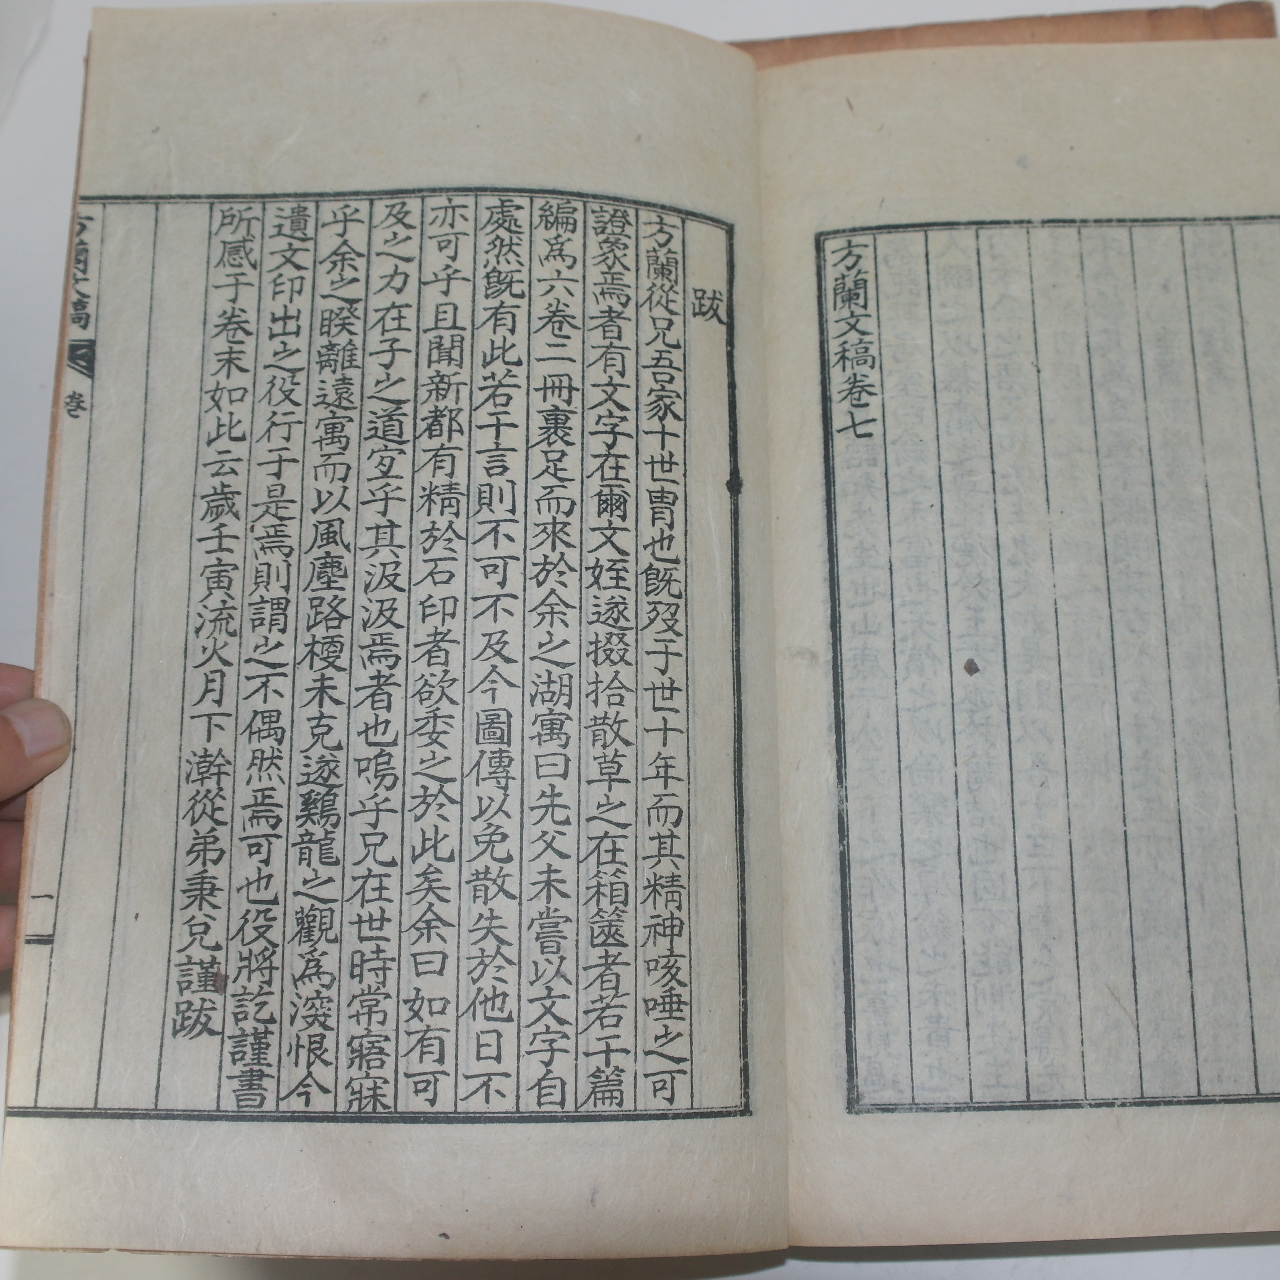 方蘭文稿卷七
跋
方蘭從兄吾家十世冑也旣歿于世十年而其精神咳唾之可
證象焉者有文字在爾文姪遂掇拾散草之在箱篋者若干篇
編爲六卷二冊裹足而來於余之湖寓曰先父未嘗以文字自
處然旣有此若干言則不可不及今圖傳以免散失於他日不
亦可乎且聞新都有精於石印者欲委之於此矣余曰如有可
及之力在子之道宐乎其汲汲焉者也嗚乎兄在世時常寤寐
乎余之暌離遠寓而以風塵路梗未克遂鷄龍之觀爲深恨今
遺文印出之役行于是焉則謂之不偶然焉可也役將訖謹書
所感于卷末如此云歲壬寅流火月下澣從弟秉兌謹跋
方蘭文稿
卷
一